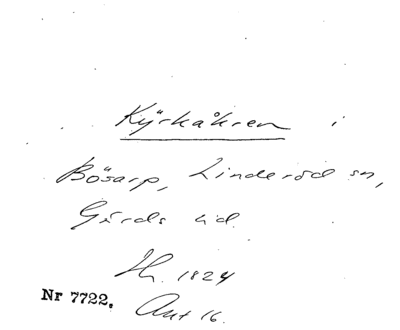 Kyrkåkren i
Bösarp, Linderöd sn,
Gärds hd.
Th. 1824
Nr 7722. Akt 16.